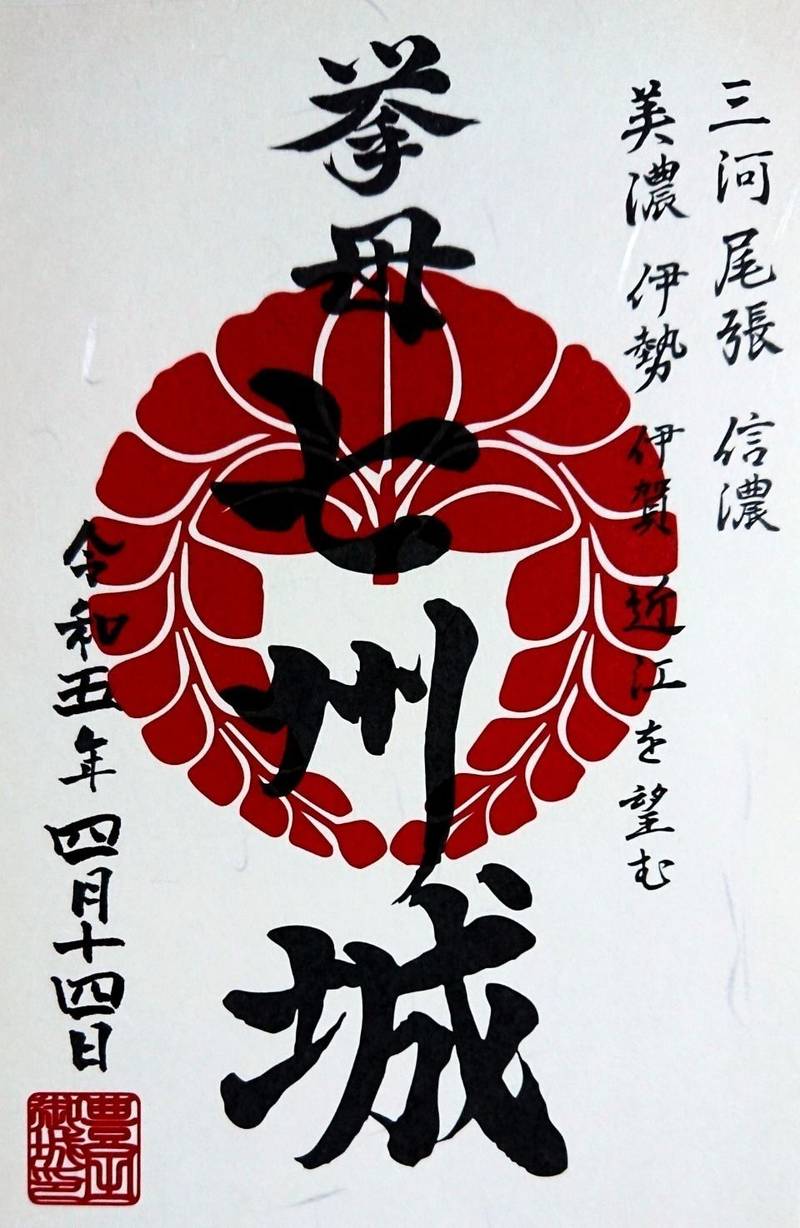 三河 尾張 信濃
美濃 伊勢 伊賀 近江を望む
挙母
七州城
令和五年四月十四日
御城印